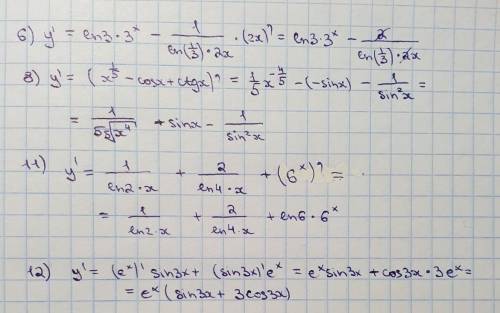 6) y' = ln3·3ˣ − 1/(ln(1/3)·2x) · (2x)' = ln3·3ˣ − 2/(ln(1/3)·2x)
8) y' = (x^(1/5) − cosx + ctgx)' = 1/5 x^(−4/5) − (−sinx) − 1/sin²x =
= 1/(5 ⁵√x⁴) + sinx − 1/sin²x
11) y' = 1/(ln2·x) + 2/(ln4·x) + (6ˣ)' =
= 1/(ln2·x) + 2/(ln4·x) + ln6·6ˣ
12) y' = (eˣ)' sin3x + (sin3x)' eˣ = eˣ sin3x + cos3x·3eˣ =
= eˣ (sin3x + 3cos3x)